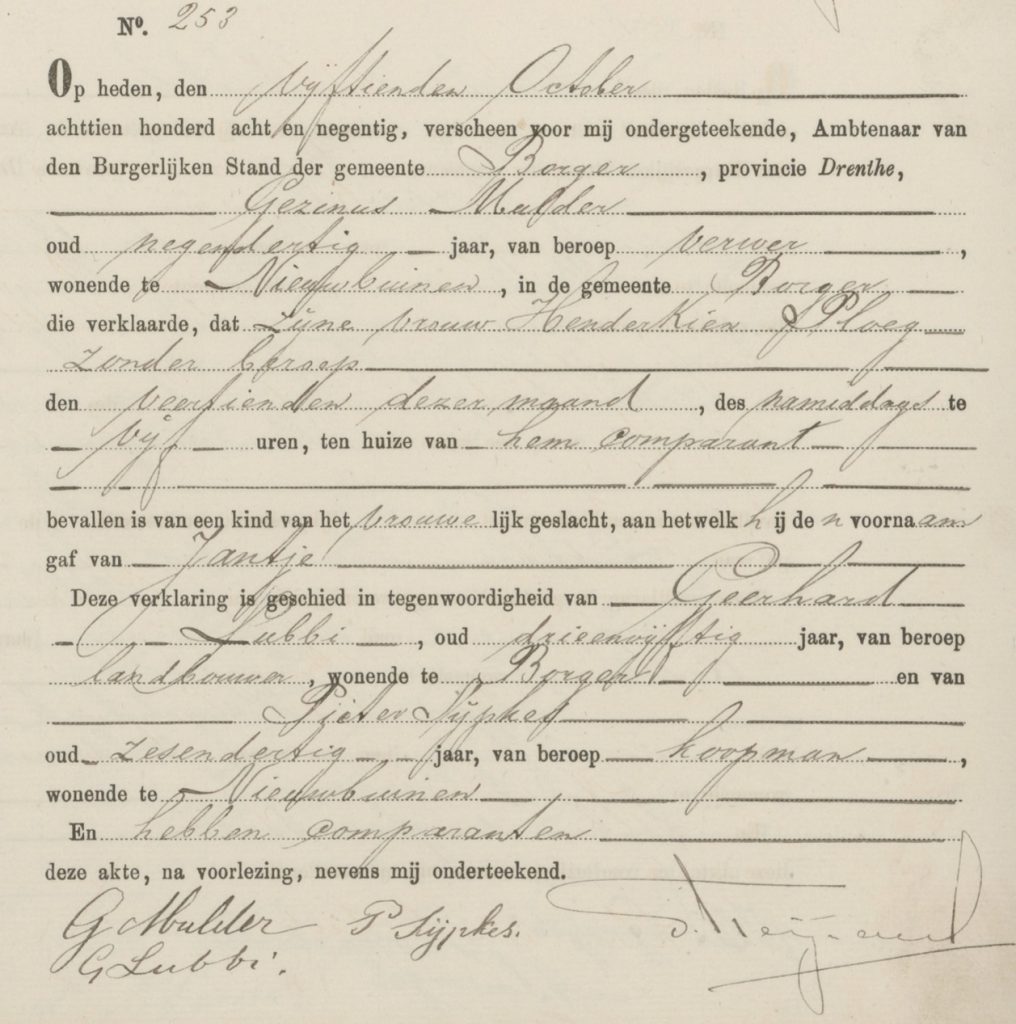 Nº. 253
Op heden, den vijftienden October
achttien honderd acht en negentig, verscheen voor mij ondergeteekende, Ambtenaar van
den Burgerlijken Stand der gemeente Borger, provincie Drenthe,
Gezinus Mulder
oud negendertig jaar, van beroep verwer,
wonende te Nieuwbuinen, in de gemeente Borger
die verklaarde, dat zijne vrouw Henderkien Ploeg
zonder beroep
den veertienden dezer maand, des namiddags te
vijf uren, ten huize van hem comparant
bevallen is van een kind van het vrouwelijk geslacht, aan hetwelk hij den voornaam
gaf van Jantje
Deze verklaring is geschied in tegenwoordigheid van Geerhard
Lubbi, oud drieenvijftig jaar, van beroep
landbouwer, wonende te Borger en van
Pieter Sijpkes
oud zesendertig jaar, van beroep koopman,
wonende te Nieuwbuinen
En hebben comparanten
deze akte, na voorlezing, nevens mij onderteekend.
G Mulder P Sijpkes.
G Lubbi.